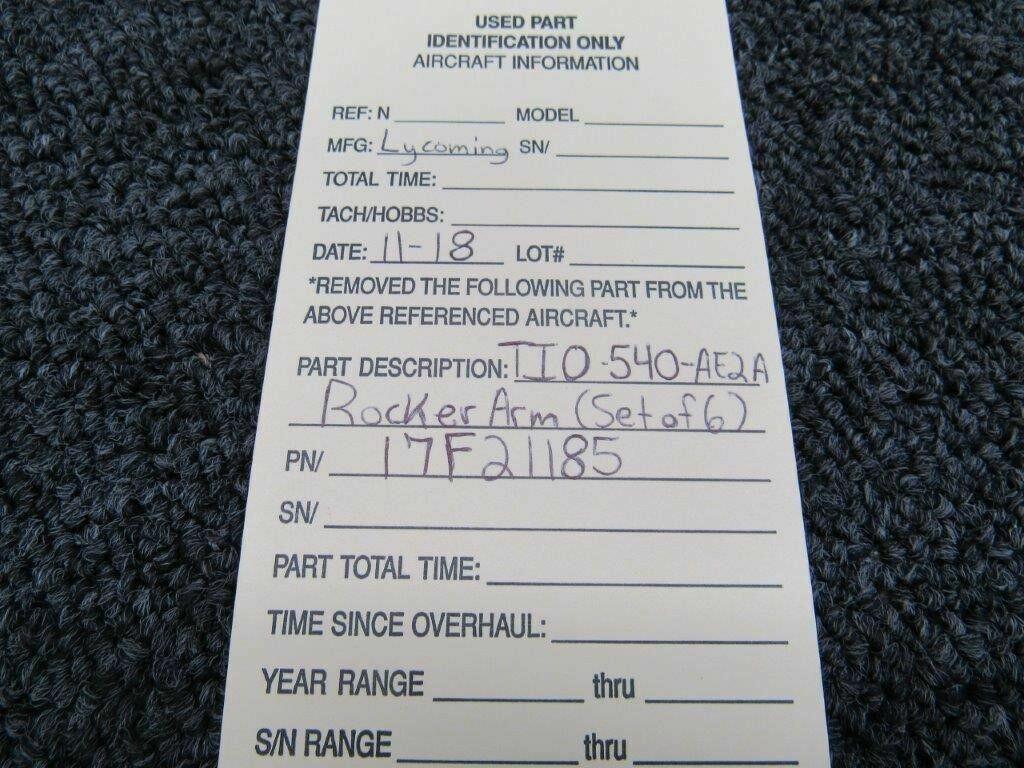 USED PART
IDENTIFICATION ONLY
AIRCRAFT INFORMATION
REF: N MODEL
MFG: Lycoming SN/
TOTAL TIME:
TACH/HOBBS:
DATE: 11-18 LOT#
*REMOVED THE FOLLOWING PART FROM THE
ABOVE REFERENCED AIRCRAFT.*
PART DESCRIPTION: TIO-540-AE2A
Rocker Arm (Set of 6)
PN/ 17F21185
SN/
PART TOTAL TIME:
TIME SINCE OVERHAUL:
YEAR RANGE thru
S/N RANGE thru